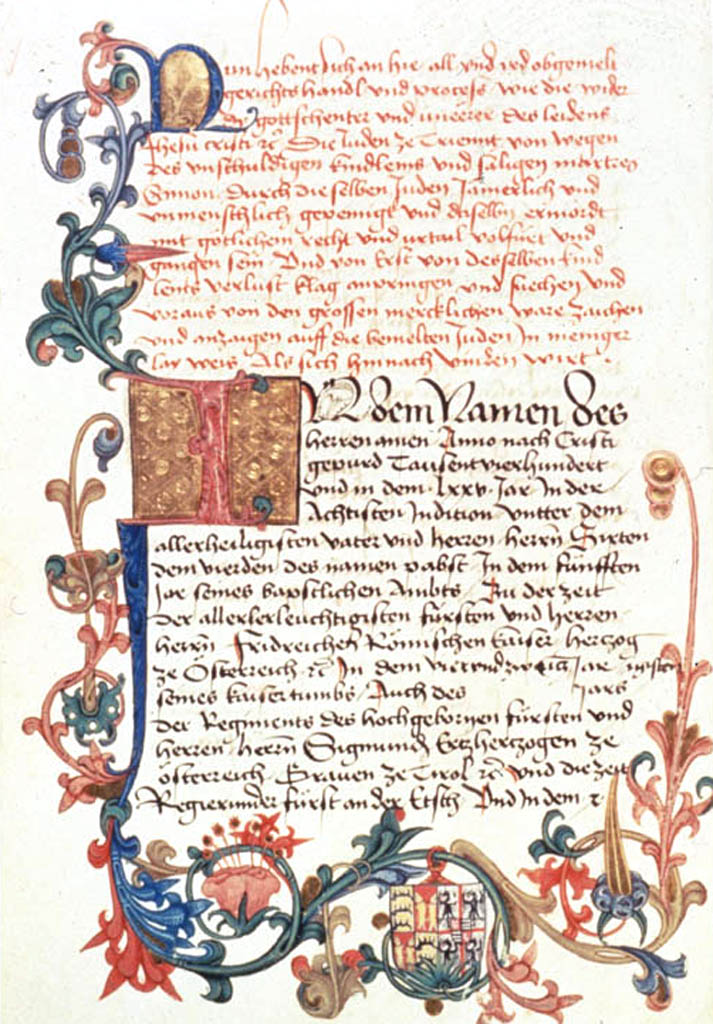 Nun hebent sich an hie all vnd yed obgemelt
gerichtshandl vnd process wie die wider
die gottschenter vnd uneerer des leidens
Jhesu cristi rc Die Juden ze Triennt von wegen
des vnschuldigen kindleins vnd säligen martrers
Simon durch die selben Juden Jämerlich vnd
vnmenschlich gepeynigt vnd daselbn ermördt
mit götlichem recht vnd vrtail volfüert vnd
gangen sein Vnd von erst von desselben kind
lents verlust klag anpringen vnd süechen vnd
voraus von den grossen mercklichen ware zaichen
vnd anzaigen auff die bemelten Juden In meniger
lay weis Als sich hinnach vinden wirt
IN dem Namen des
herren amen Anno nach Cristi
gepurd Tausent vierhundert
vnd in dem lxxv Jar In der
Achtisten Indition vntter dem
allerheiligisten vater vnd herren herrn Sixten
dem vierden des namen pabst In dem fünfften
Jar seines bapstlichen Ambts Zu der zeit
der allerlerleuchtigisten fürsten vnd herren
herrn Fridreichen Römischen kaiser hertzog
ze Österreich rc In dem vierundzwainzigisten Jar
seines kaisertumbs Auch des Jars
der Regiments des hochgebornen fürsten vnd
herren herrn Sigmunds Ertzhertzogen ze
österreich Grauen ze Tirol rc vnd die zeit
Regierunder fürst an der Etsch Vnd In dem